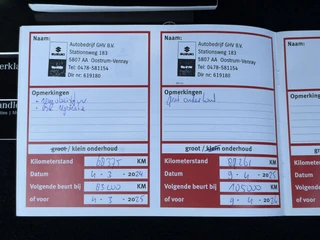 Naam:
Autobedrijf GHV B.V.
Stationsweg 183
5807 AA Oostrum-Venray
Tel: 0478-581154
Dlr nr: 619180
SUZUKI
Opmerkingen
groot / klein onderhoud
Kilometerstand 68375 KM
Datum 4-3-2024
Volgende beurt bij 83000 KM
of voor 4-3-2025
Naam:
Autobedrijf GHV B.V.
Stationsweg 183
5807 AA Oostrum-Venray
Tel: 0478-581154
Dlr nr: 619180
SUZUKI
Opmerkingen
groot onderhoud
groot / klein onderhoud
Kilometerstand 88261 KM
Datum 9-4-2025
Volgende beurt bij 105000 KM
of voor 9-4-2026
Naam:
Opmerkingen
Kilometerstand
Datum
Volgende
of voor